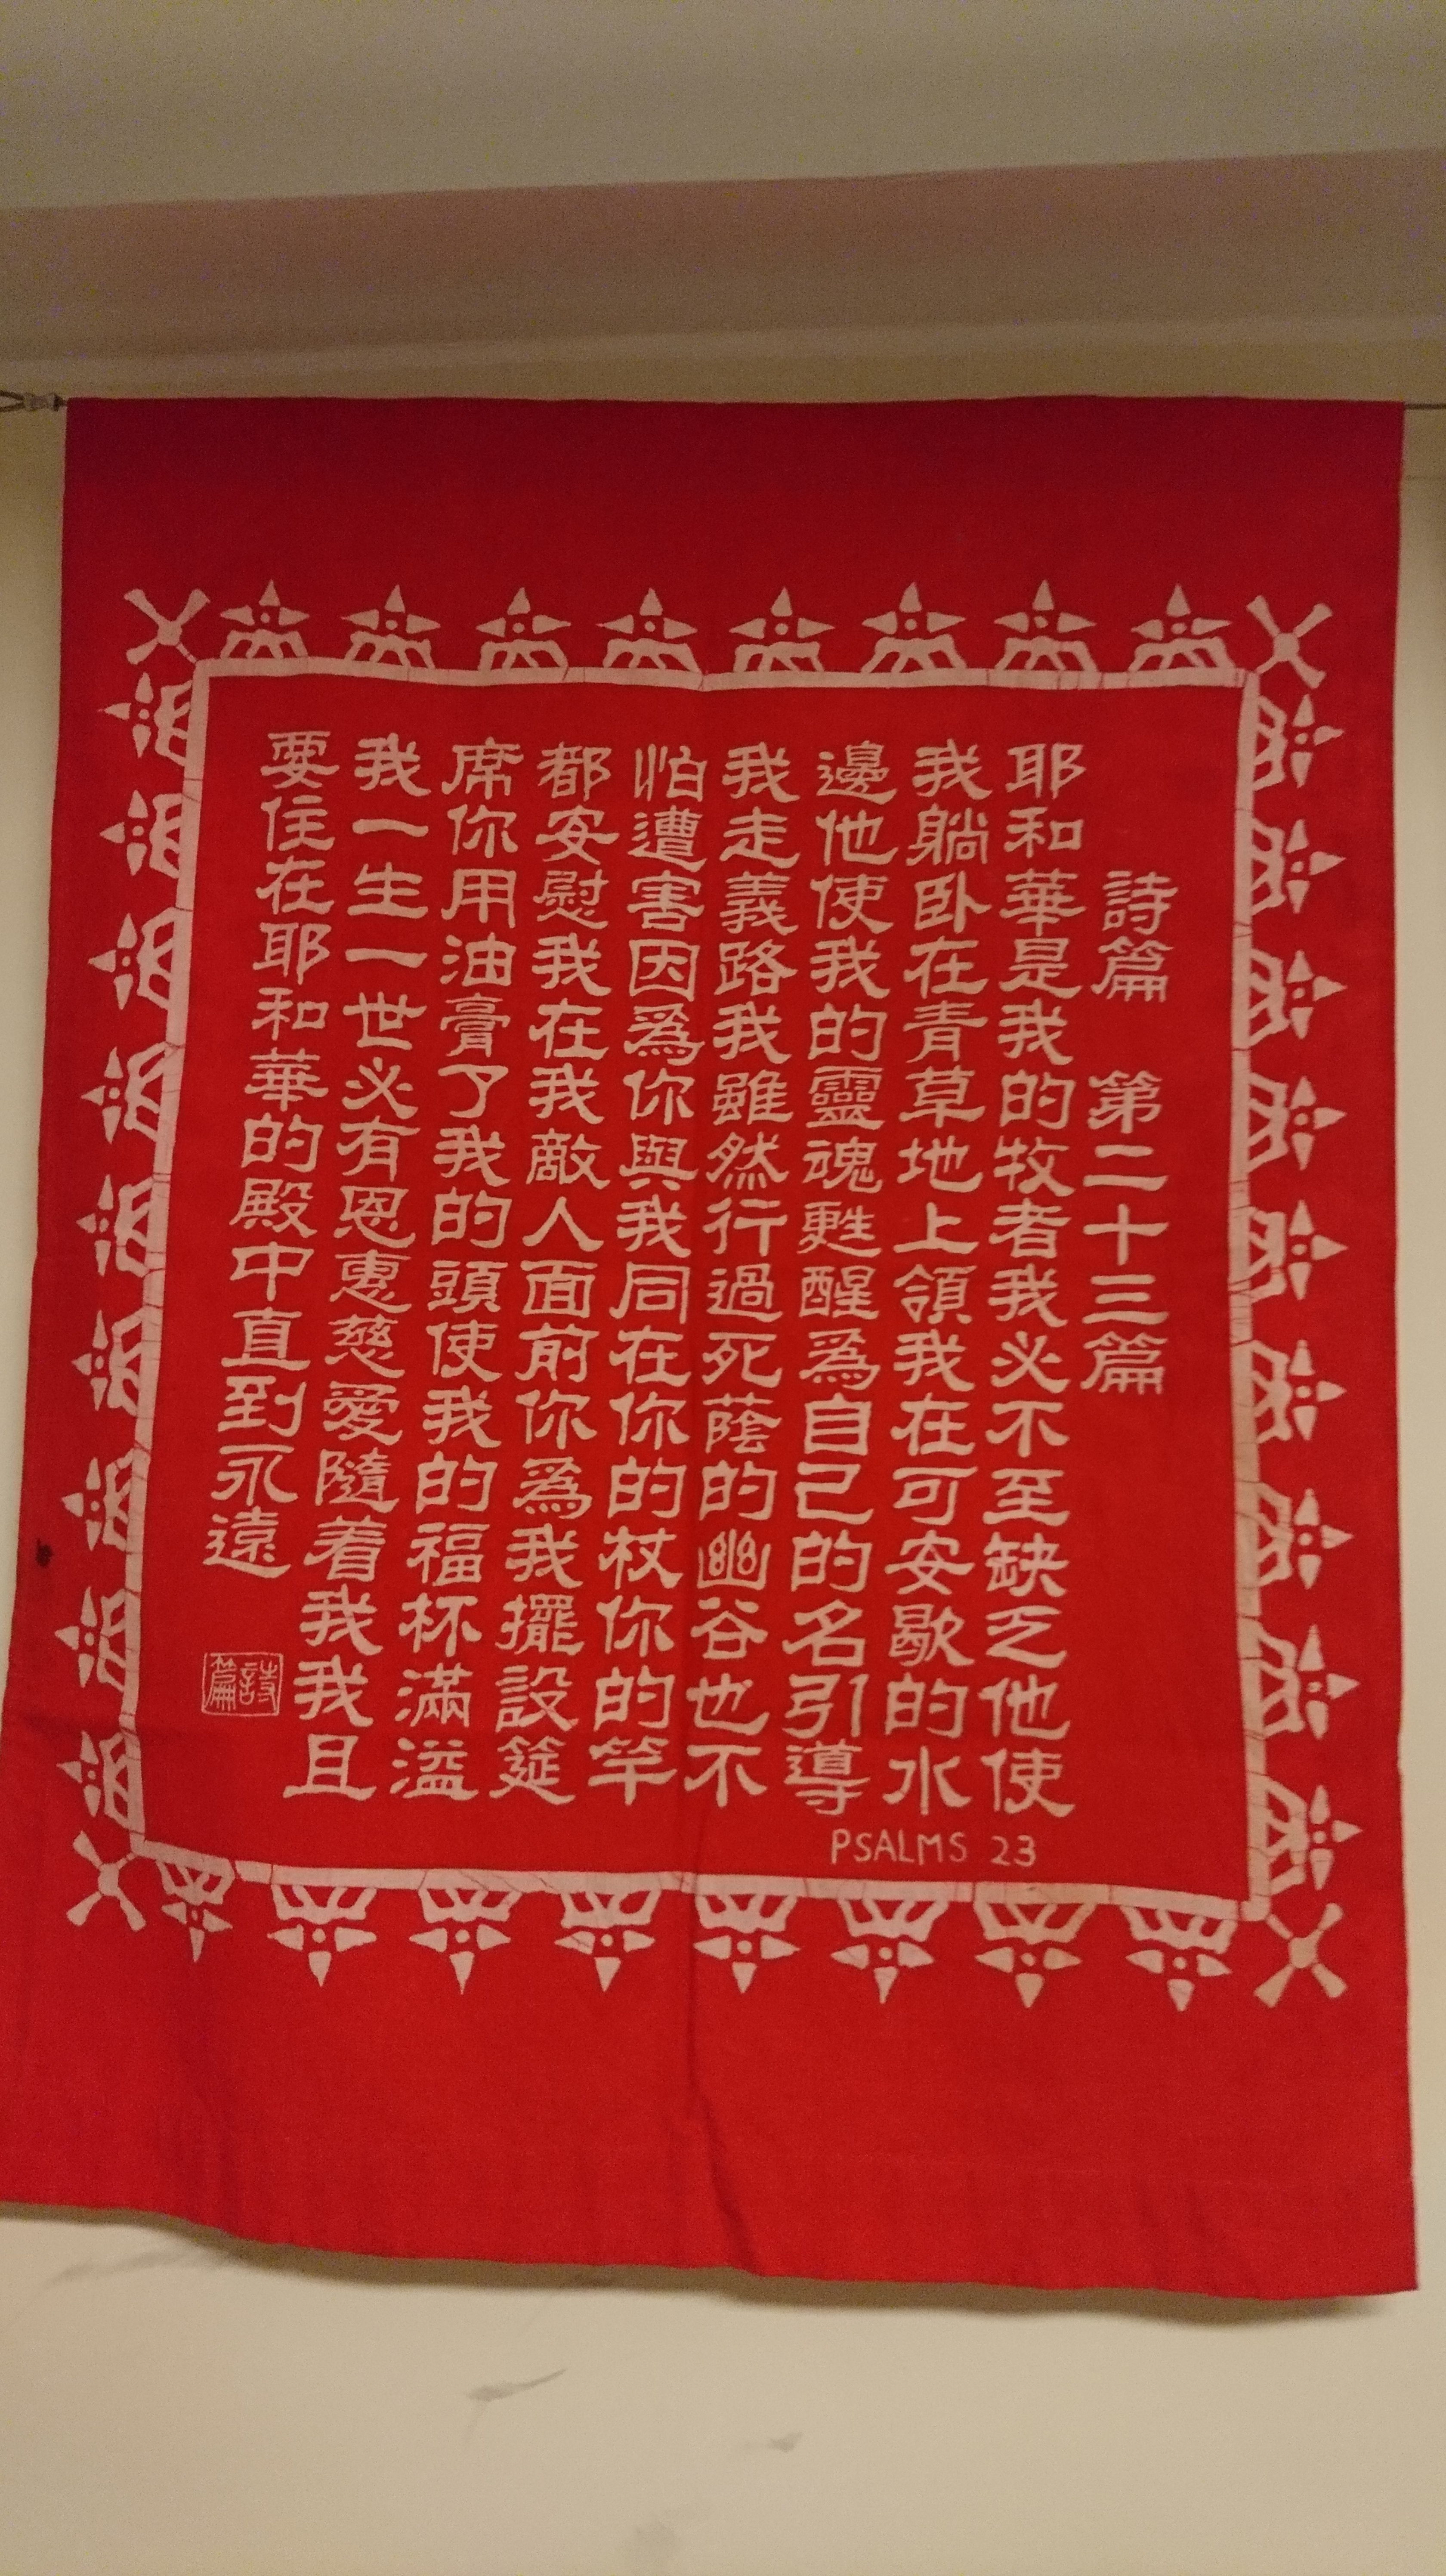 詩篇 第二十三篇
耶和華是我的牧者我必不至缺乏他使
我躺卧在青草地上領我在可安歇的水
邊他使我的靈魂甦醒爲自己的名引導
我走義路我雖然行過死蔭的幽谷也不
怕遭害因爲你與我同在你的杖你的竿
都安慰我在我敵人面前你爲我擺設筵
席你用油膏了我的頭使我的福杯滿溢
我一生一世必有恩惠慈愛隨着我我且
要住在耶和華的殿中直到永遠
詩篇
PSALMS 23